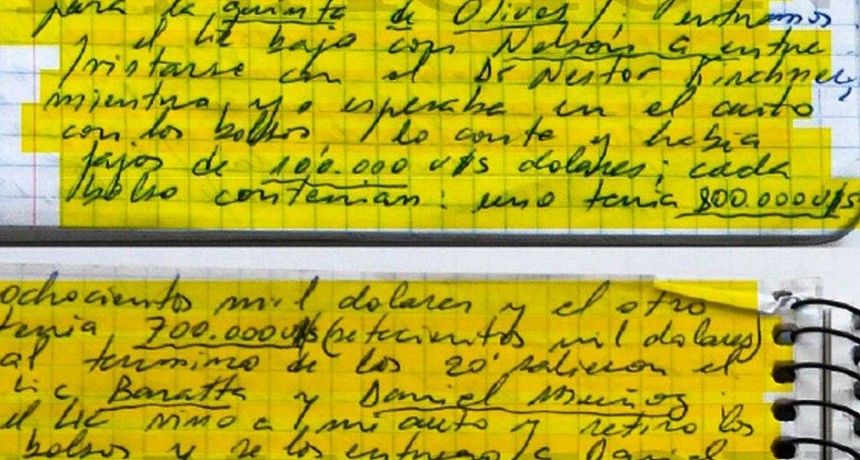 para la quinta de Olivos /; entramos
y el Lic bajo con Nelson a entre
/vistarse con el Dr Nestor Kirchner,
mientras yo esperaba en el auto
con los bolsos / lo conte y habia
fajos de 100.000 u$s dolares; cada
/bolso contenian: uno tenia 800.000 u$s
ochocientos mil dolares y el otro
tenia 700.000 u$s (setecientos mil dolares)
al termino de los 20' salieron el
Lic Baratta y Daniel Muñoz
el Lic vino a mi auto y retiro los
bolsos y se los entrego a Daniel